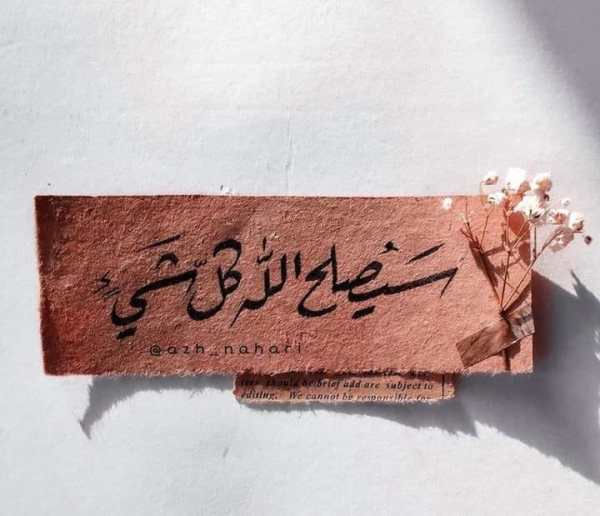 سَيُصلح اللّٰه كلّ شَيءٍ
@azh_nahari
ters should be brief add are subject to
editing. We cannot be responsible for